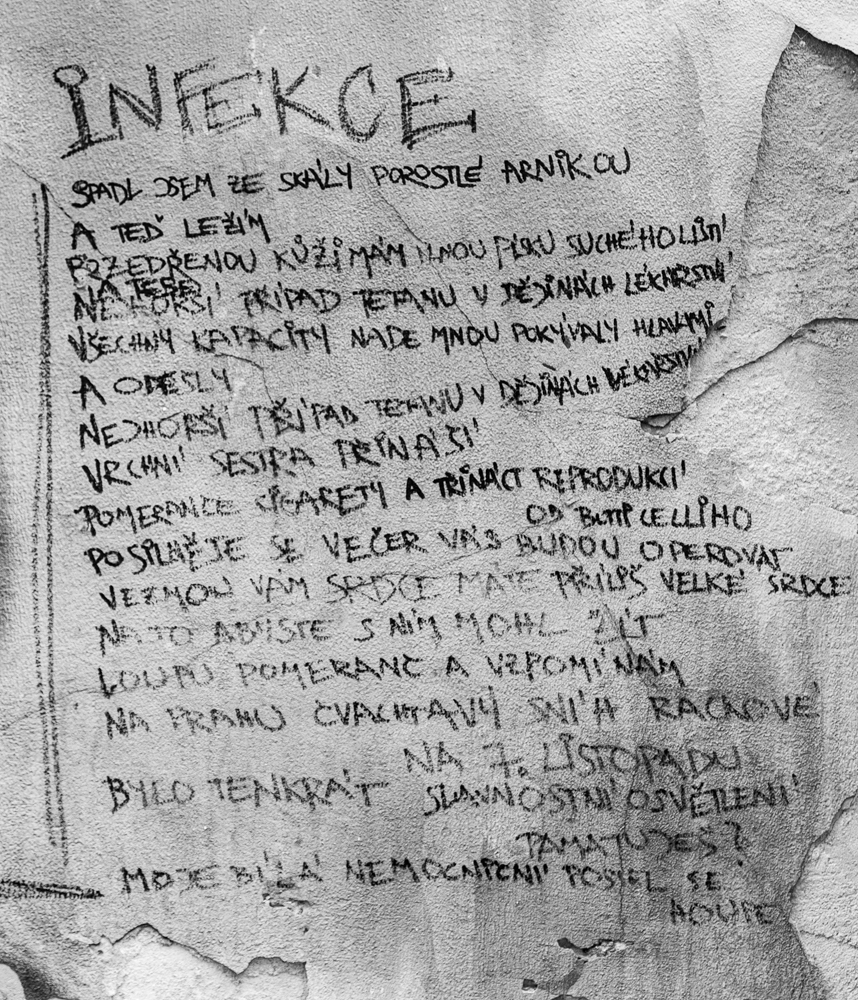 INFEKCE
SPADL JSEM ZE SKÁLY POROSTLÉ ARNIKOU
A TEĎ LEŽÍM
POZEDŘENOU KŮŽÍ MÁM PLNOU PÍSKU SUCHÉHO LISTÍ
NA TEBE
NEJHORŠÍ PŘÍPAD TETANU V DĚJINÁCH LÉKAŘSTVÍ
VŠECHNY KAPACITY NADE MNOU POKÝVALY HLAVAMI
A ODEŠLY
NEJHORŠÍ PŘÍPAD TETANU V DĚJINÁCH LÉKAŘSTVÍ
VRCHNÍ SESTRA PŘINÁŠÍ
POMERANČE CIGARETY A TŘINÁCT REPRODUKCÍ
OD BOTTICELLIHO
POSILNĚTE SE VEČER VÁS BUDOU OPEROVAT
VEZMOU VÁM SRDCE MÁTE PŘÍLIŠ VELKÉ SRDCE
NA TO ABYSTE S NÍM MOHL ŽÍT
LOUPU POMERANČ A VZPOMÍNÁM
NA PRAHU ČVACHTAVÝ SNÍH RACKOVÉ
NA 7. LISTOPADU
BYLO TENKRÁT SLAVNOSTNÍ OSVĚTLENÍ
PAMATUJEŠ?
MOJE BÍLÁ NEMOCNIČNÍ POSTEL SE
HOUPE